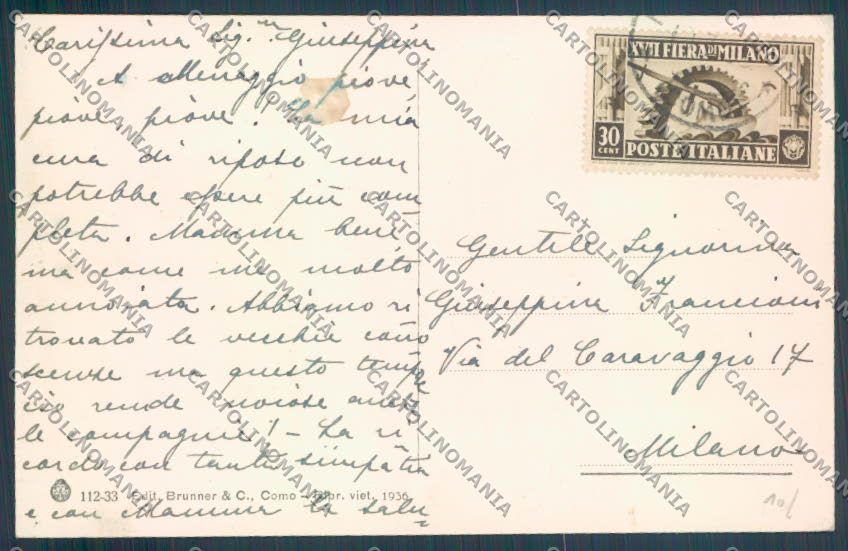 Carissima Sig.na Giuseppina
A Menaggio piove,
piove, piove. La mia
cura di riposo non
potrebbe essere più com
pleta. Mamma bene
ma come me molto
annoiata. Abbiamo ri
trovato le vecchie cono
scenze ma questo tempac
cio rende noiose anche
le compagnie! - La ri
cordo con tanta simpatia
e con Mamma la salu-
112-33 Edit. Brunner & C., Como - Ripr. viet. 1936
XVII FIERA DI MILANO
30
CENT
POSTE ITALIANE
Gentile Signorina
Giuseppina Francioni
Via del Caravaggio 17
Milano
CARTOLINOMANIA